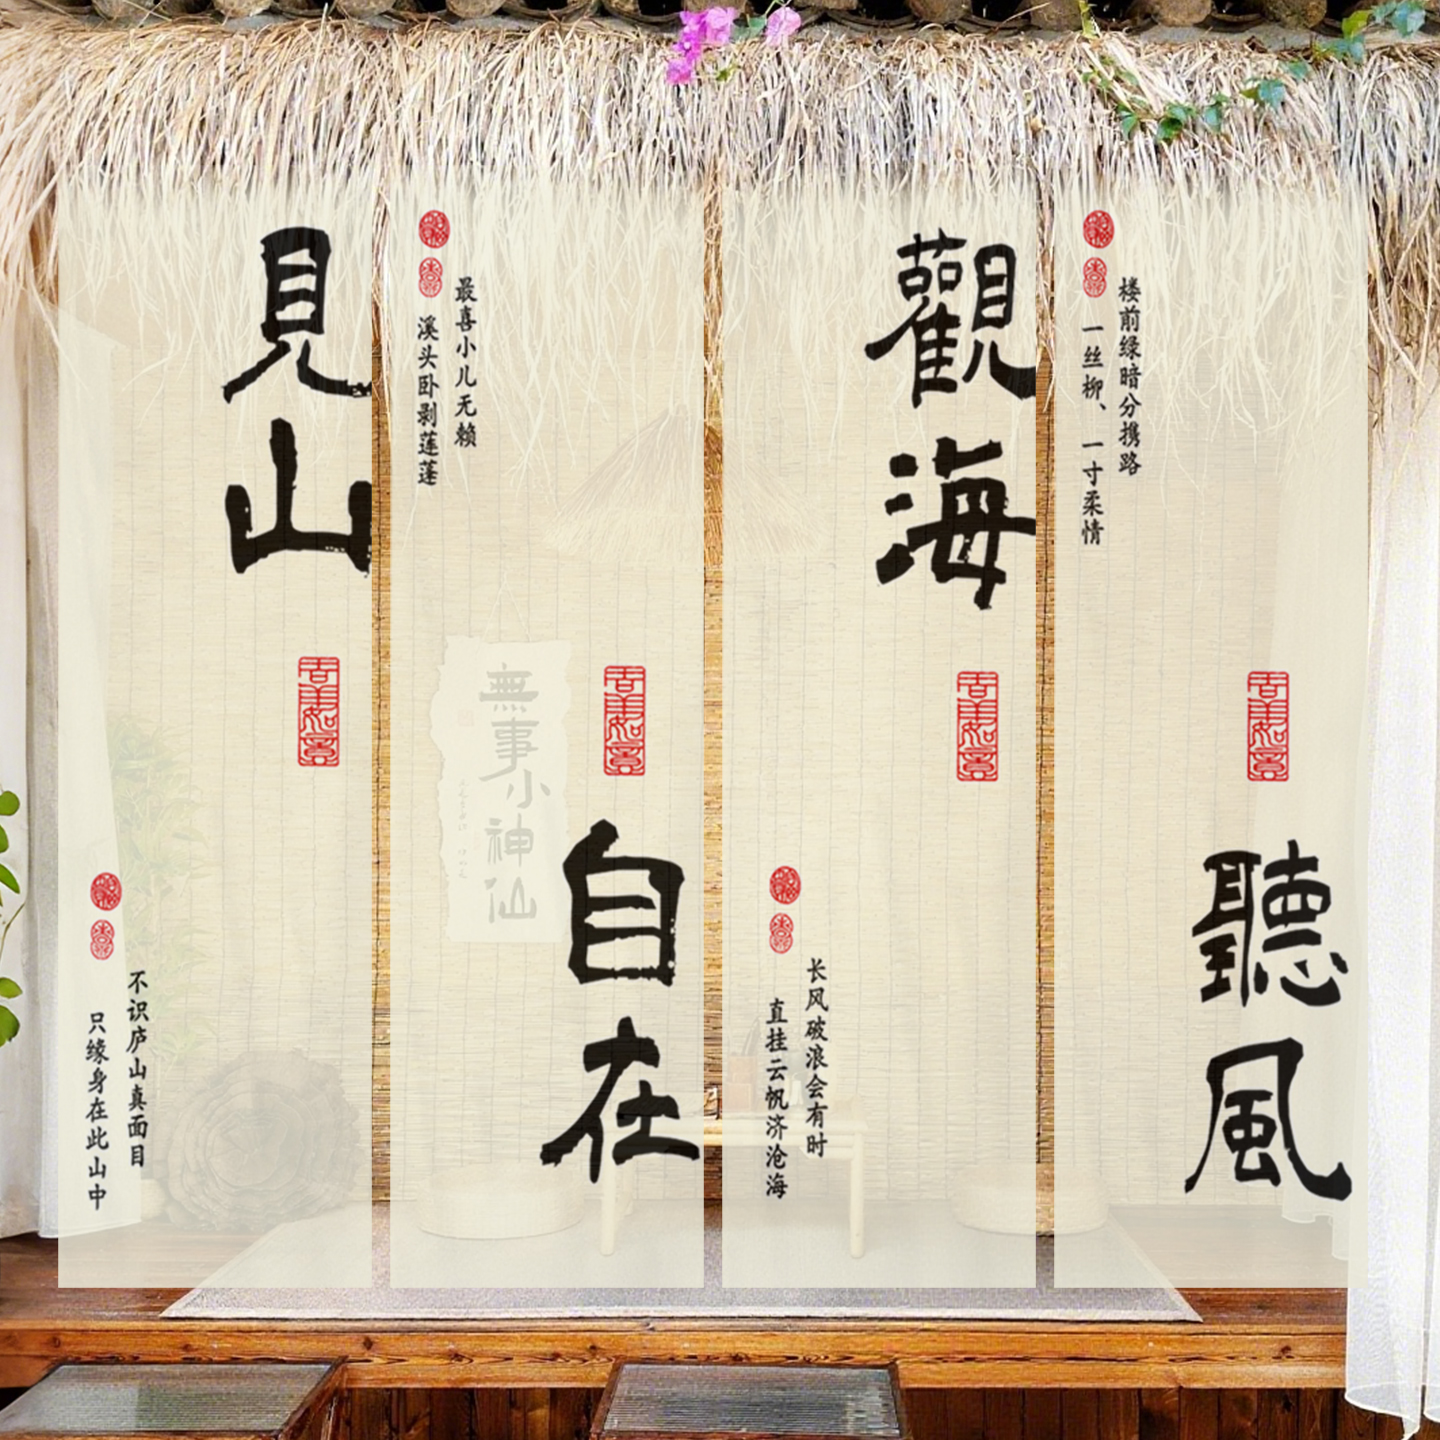 見山
不识庐山真面目
只缘身在此山中
最喜小儿无赖
溪头卧剥莲蓬
無事小神仙
自在
觀海
长风破浪会有时
直挂云帆济沧海
楼前绿暗分携路
一丝柳、一寸柔情
聽風